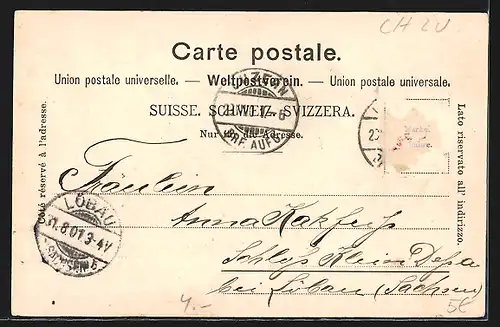 CH ZU
Carte postale.
Union postale universelle. — Weltpostverein. — Unione postale universale.
SUISSE. SCHWEIZ. SVIZZERA.
Nur für die Adresse.
Côté réservé à l'adresse.
Lato riservato all' indirizzo.
LUZERN
BRF. AUFG.
LÖBAU
31.8.01.3-4V
(SACHSEN) b
Fräulein
Anna
Schloss Klein
bei Löbau (Sachsen)
4.-
5€